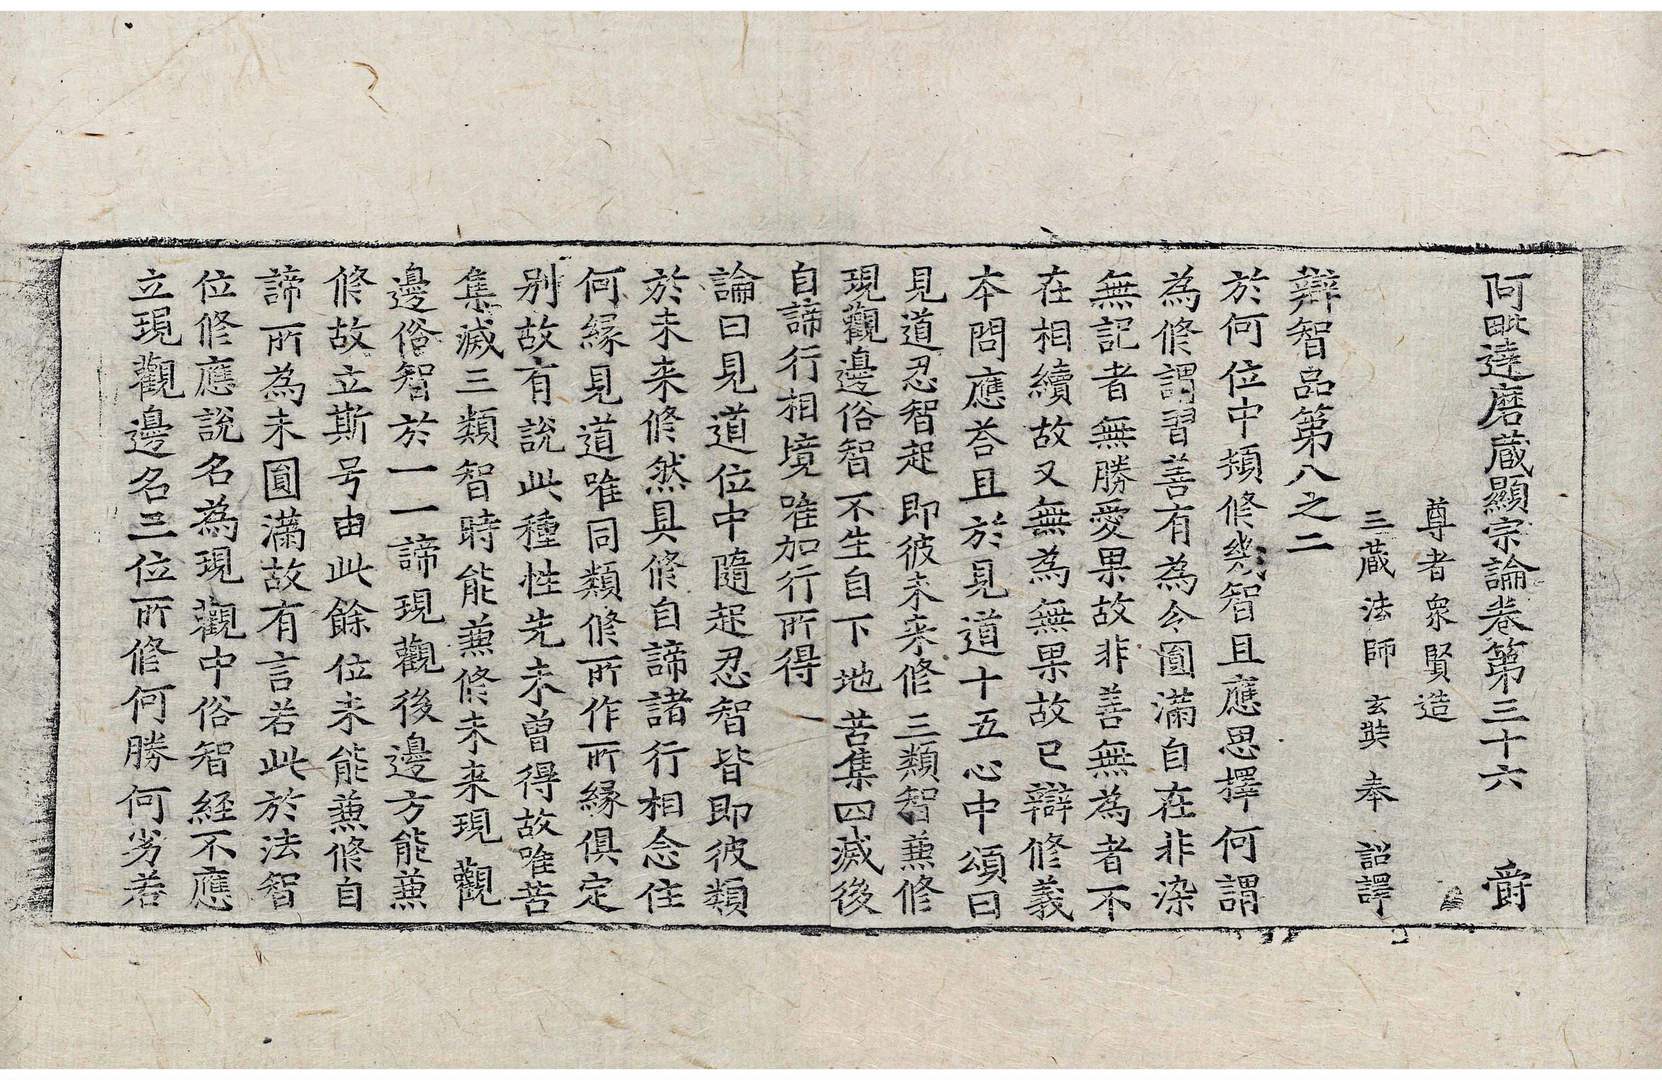 阿毗達磨蔵顯宗論卷第三十六　爵
尊者衆賢造
三蔵法師玄奘奉　詔譯
辯智品第八之二
於何位中頓修幾智且應思擇何謂
為修謂習善有為令圓滿自在非染
無記者無勝愛果故非善無為者不
在相續故又無為無果故已辯修義
本問應荅且於見道十五心中頌曰
見道忍智起　即彼未来修　三類智兼修
現觀邊俗智　不生自下地　苦集四滅後
自諦行相境　唯加行所得
論曰見道位中隨起忍智皆即彼類
於未来修然具修自諦諸行相念住
何縁見道唯同類修所作所縁俱定
别故有說此種性先未曾得故唯苦
集滅三類智時能兼修未来現　觀
邊俗智於一一諦現觀後邊方能兼
修故立斯号由此餘位未能兼修自
諦所為未圓滿故有言若此於法智
位修應說名為現觀中俗智經不應
立現觀邊名三位所修何勝何劣若